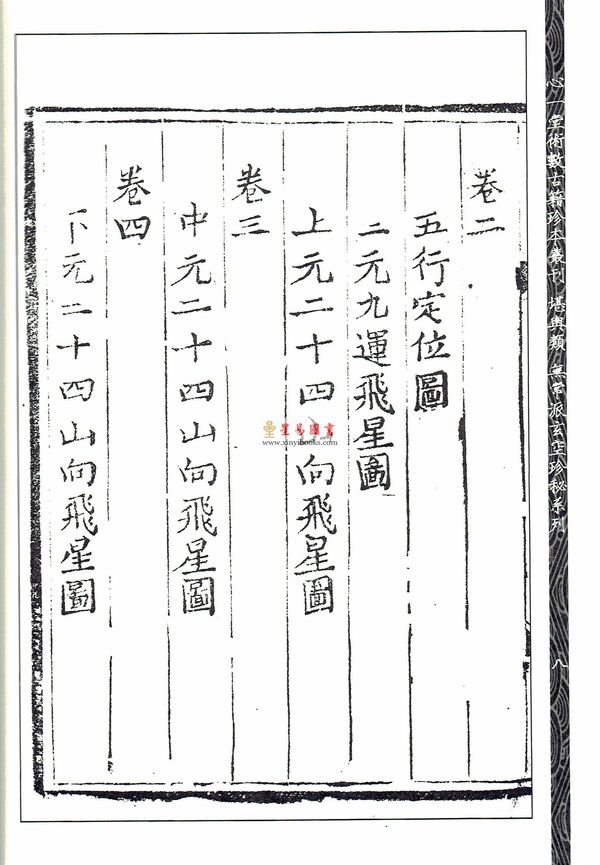 卷二
五行定位圖
二元九運飛星圖
上元二十四 向飛星圖
卷三
中元二十四山向飛星圖
卷四
下元二十四山向飛星圖
星易圖書
www.xinyibooks.com
心一堂術數古籍珍本叢刊 堪輿類 無常派玄空珍秘系列
八